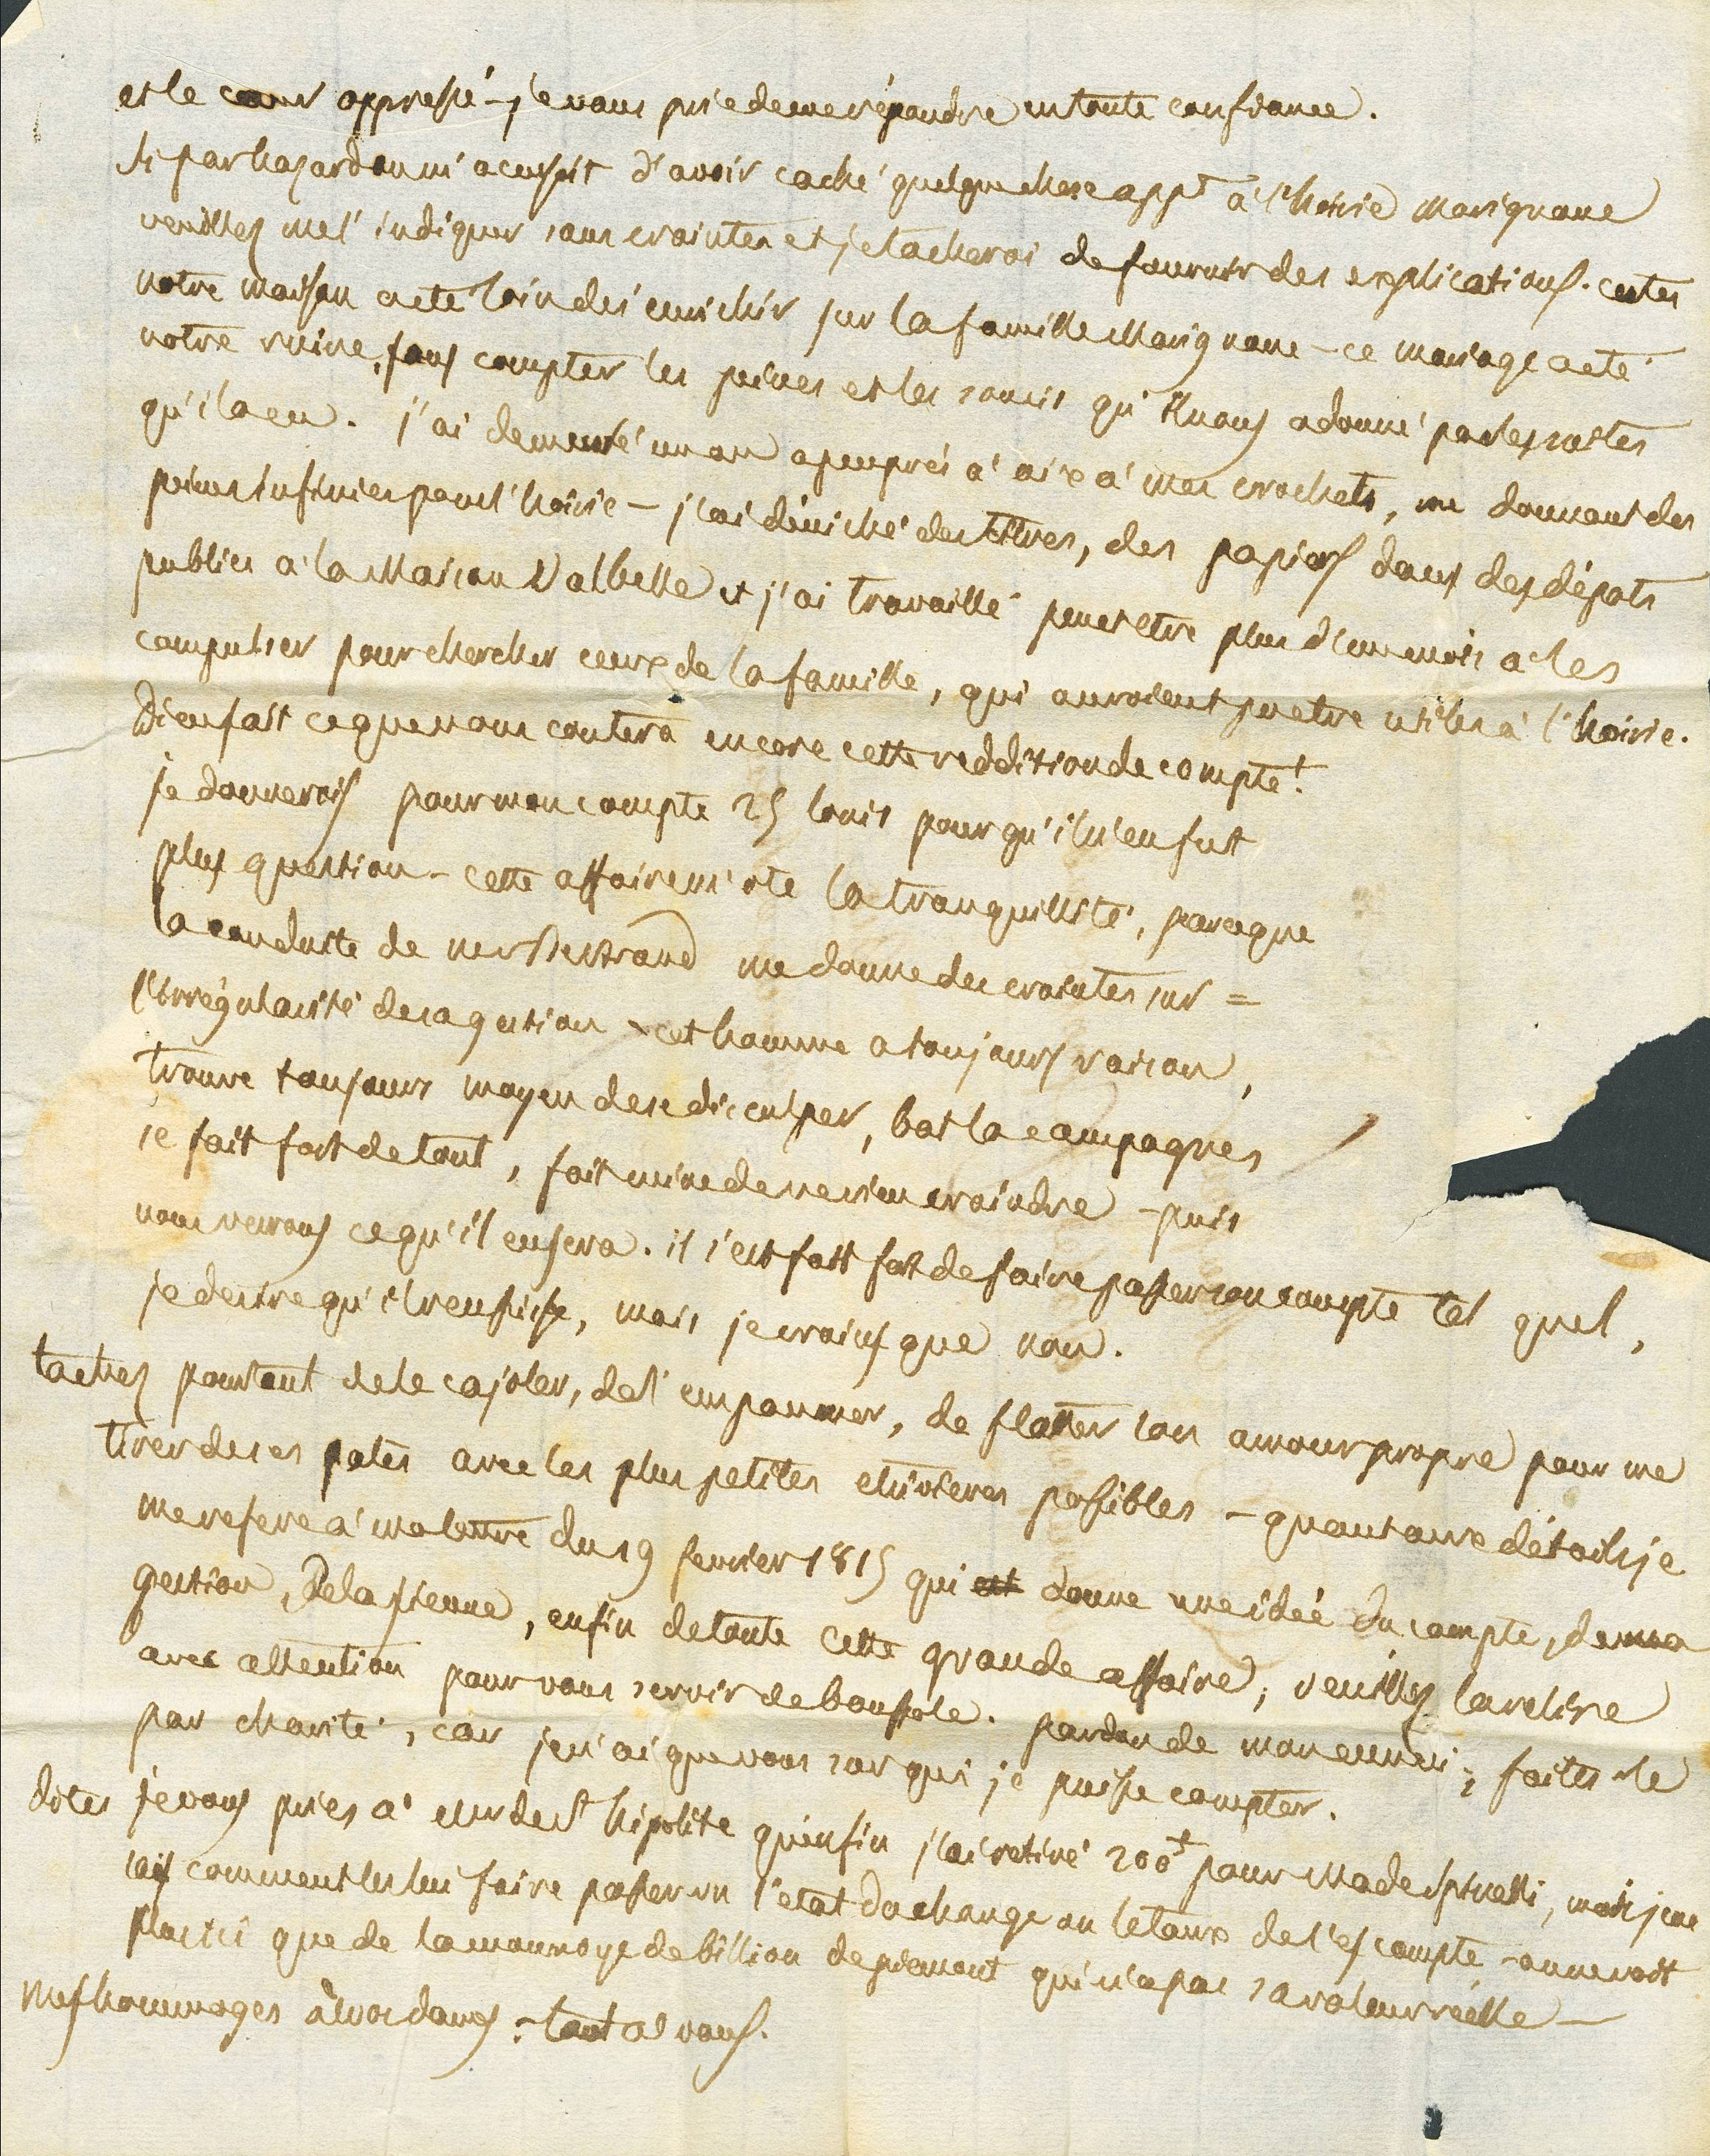 et le cœur oppressé – je vous prie de me répondre en toute confiance.
Si par hazard on m'accusoit d'avoir caché quelque chose appt à l'hoirie Marignane
veuillez me l'indiquer sans craintes et je tacherai de fournir des explications. certes
notre maison a eté loin de s'enrichir sur la famille Marignane – ce mariage a eté
notre ruine, sans compter les peines et les soucis qu'il nous a donné par les suites
qu'il a eu. j'ai demeuré un an a peu près à aix à mes crochets, me donnant des
peines infinies pour l'hoirie – j'ai déniché des titres, des papiers dans des dépots
publics à la Maison Valbelle et j'ai travaillé peut etre plus d'un mois a les
compulser pour chercher ceux de la famille, qui auroient pu etre utiles à l'hoirie.
Dieu sait ce que nous coutera encore cette reddition de compte!
je donnerois pour mon compte 25 louis pour qu'il n'en fut
plus question – cette affaire m'ote la tranquillité, parceque
la conduite de mr Bertrand me donne des craintes sur =
l'irrégularité de sa gestion – cet homme a toujours raison,
trouve toujours moyen de se disculper, bat la campagne,
se fait fort de tout, fait mine de ne rien craindre – puis
nous verrons ce qu'il en sera. il s'est fait fort de faire passer son compte tel quel,
je desire qu'il reussisse, mais je crains que non.
tachez pourtant de le cajoler, de l'empaumer, de flatter son amour propre pour me
tirer de ses pates avec les plus petites etrivieres possibles – quant aux détails je
me refere à ma lettre du 19 fevrier 1815 qui est donne une idée du compte, de ma
gestion, De la sienne, enfin de toute cette grande affaire; veuillez la relire
avec attention pour vous servir de boussole. pardon de mon ennui; faites le
par charité, car je n'ai que vous sur qui je puisse compter.
dites je vous prie à Mr de St hipolite qu'enfin j'ai retiré 200 pour Made Spinelli, mais je ne
sais comment les lui faire passer vu l'état du change ou le taux de l'escompte – on ne voit
plus ici que de la monnoye de billion de piemont qui n'a pas sa valeur réelle –
Mes hommages à vos dames – tout a vous.